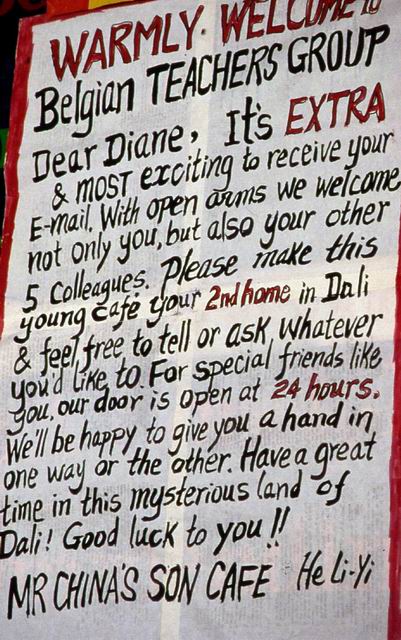 WARMLY WELCOME to
Belgian TEACHERS GROUP
Dear Diane, It's EXTRA
& MOST exciting to receive your
E-mail. With open arms we welcome
not only you, but also your other
5 Colleagues. Please make this
young café your 2nd home in Dali
& feel free to tell or ask whatever
you'd like to. For special friends like
you, our door is open at 24 hours.
We'll be happy to give you a hand in
one way or the other. Have a great
time in this mysterious land of
Dali! Good luck to you!!
MR CHINA'S SON CAFE He Li-Yi